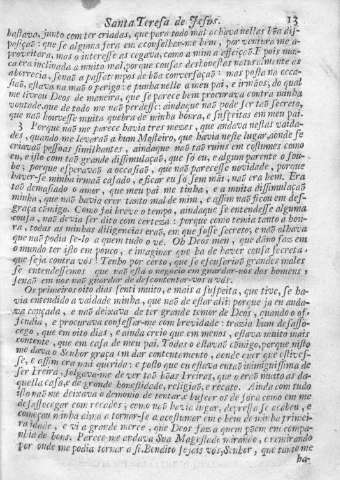 Santa Teresa de Jesus. 13
bastava, junto com ter criadas, que para todo mal achava nellas boa dis-
posiçaõ: que se alguma fora em aconselharme bem, por ventura me a-
proveitara, mas o interesse as cegava, como a mim a affeiçaõ. E pois nun-
ca era inclinada a muito mal, porque cousas deshonestas naturalmente as
aborrecia, senaõ a passatempos de boa conversaçaõ: mas posta na occa-
siaõ, estava na maõ o perigo: e punha nelle a meu pay, e irmãos, do qual
me livrou Deos de maneira, que se parece bem procurava contra minha
vontade, que de todo me naõ perdesse: aindaque naõ pode ser taõ secreto,
que naõ houvesse muita quebra de minha honra, e suspeitas em meu pai.
3 Porque naõ me parece havia tres mezes, que andava nestas vaida-
des, quando me levaraõ a hum Mosteiro, que havia neste lugar, aonde se
criavaõ pessoas similhantes, aindaque naõ taõ ruins em costumes como
eu, e isto com taõ grande dissimulaçaõ, que só eu, e algum parente o sou-
be; porque esperavaõ a occasiaõ, que naõ parecesse novidade, porque
haver-se minha irmaã casado, e ficar eu só sem mãi, naõ era bem. Era
taõ demasiado o amor, que meu pai me tinha, e a muita dissimulaçaõ
minha, que naõ havia crer tanto mal de mim, e assim naõ ficou em des-
graça comigo. Como foi breve o tempo, aindaque se entendesse alguma
cousa, naõ devia ser dito com certeza: porque como temia tanto a hon-
ra, todas as minhas diligencias eraõ, em que fosse secreto, e naõ olhava
que naõ podia se-lo a quem tudo o vê. Oh Deos meu, que dãno faz em
o mundo ter isto em pouco, e imaginar que ha de haver cousa secreta,
que seja contra vós! Tenho por certo, que se escusariaõ grandes males
se entendessemos que naõ está o negocio em guardar-nos dos homens,
senaõ em nos naõ guardar de descontentar-vos a vós.
Os primeiros oito dias senti muito, e mais a suspeita, que tive, se ha-
via entendido a vaidade minha, que naõ de estar alli: porque ja eu anda-
va cançada, e naõ deixava de ter grande temor de Deos, quando o of-
fendia, e procurava confessar-me com brevidade: trazia hum desasso-
cego, que em oito dias, e ainda creio que em menos, estava muito mais
contente, que em casa de meu pai. Todas o estavaõ comigo, porque nisto
me dava o Senhor graça em dar contentamento, aonde quer que estives-
se, e assim era mui querida: e posto que eu estava entaõ inimiguissima de
ser Freira, folgava-me de ver taõ boas Freiras, que o eraõ muito as da-
quella casa, e de grande honestidade, religiaõ, e recato. Ainda com tudo
isto naõ me deixava o demonio de tentar, e buscar os de fora como em me
desassocegar com recados, como naõ havia lugar, depressa se acabou, e
começou minha alma a tornar-se a acostumar em o bem de minha primei-
ra idade, e vi a grande mercê, que Deos faz a quem põem em compa-
nhia de bons. Parece me andava Sua Magestade mirando, e remirando
por onde me podia tornar a si. Bendito sejais vós, Senhor, que tanto me
ha-